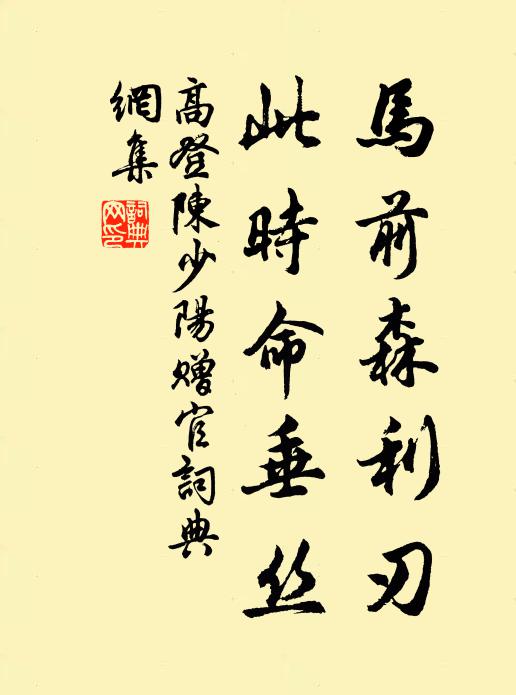 馬前森利刃
此時命垂丝
高登陳少陽贈官詞典
網集
詞典
网印